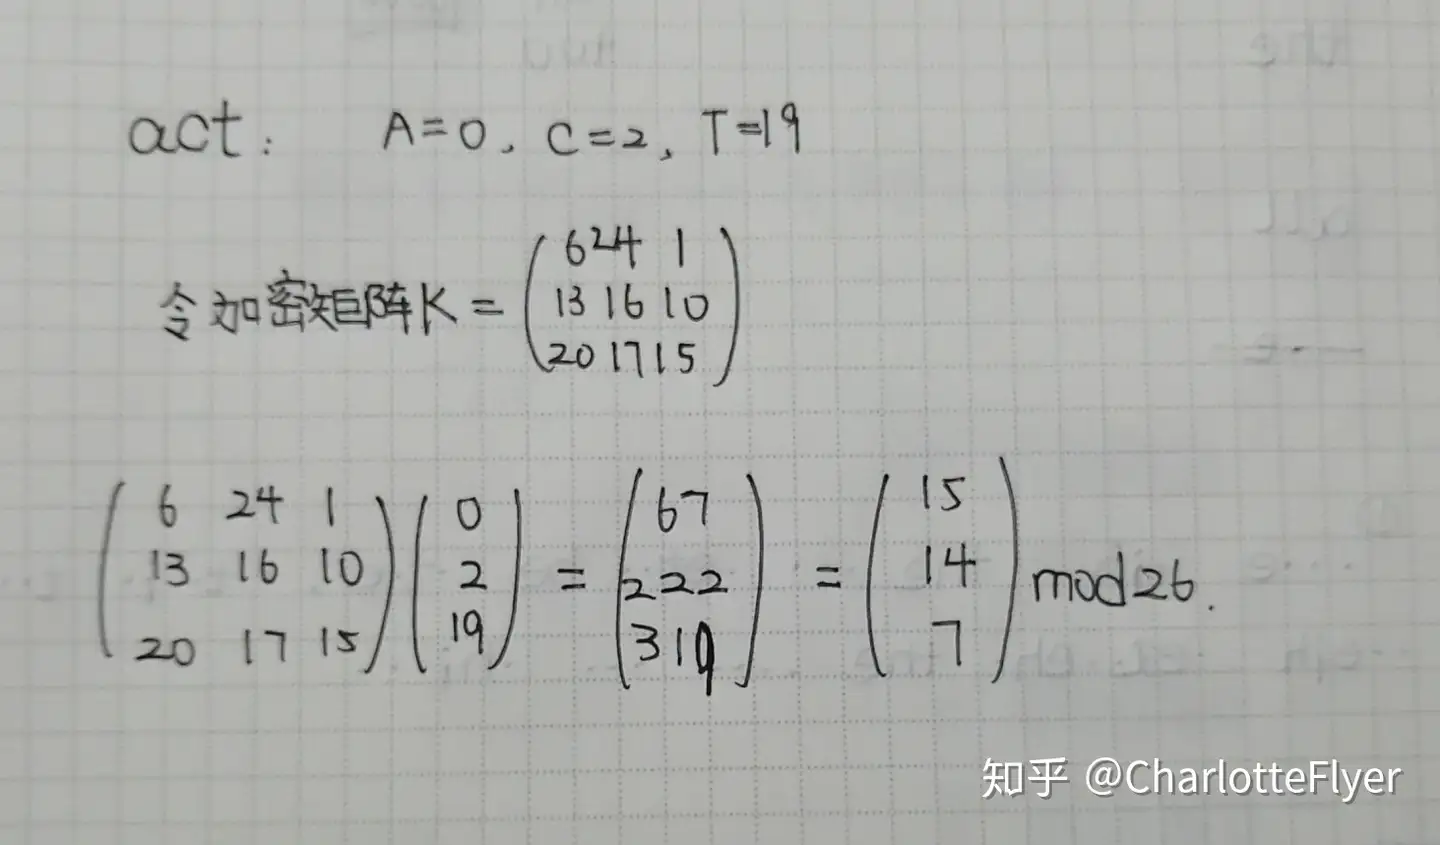 act: A=0, C=2, T=19
令加密矩阵K = (6 24 1
13 16 10
20 17 15)
(6 24 1
13 16 10
20 17 15) (0
2
19) = (67
222
319) = (15
14
7) mod26.
知乎 @CharlotteFlyer